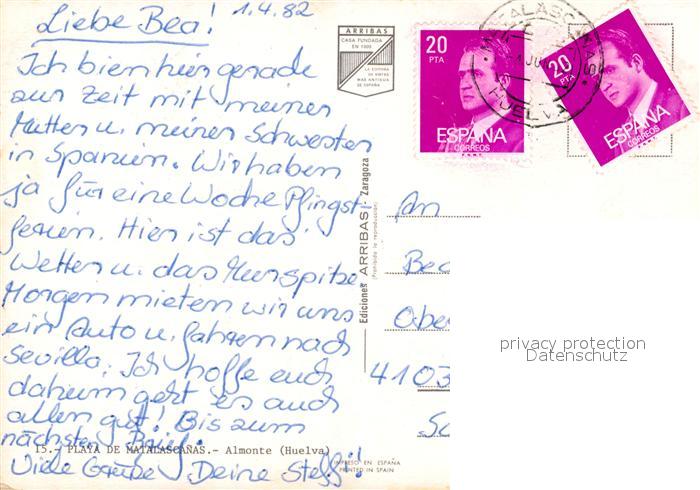 1.4.82
Liebe Bea!
Ich bin hier gerade
zur Zeit mit meiner
Mutter u. meinen Schwestern
in Spanien. Wir haben
ja für eine Woche Pfingst-
ferien. Hier ist das
Wetter u. das Meer spitze
Morgen mieten wir uns
ein Auto u. fahren nach
Sevilla. Ich hoffe euch
daheim geht es auch
allen gut! Bis zum
nächsten Brief.
Viele Grüße Deine Steffi!
15.- PLAYA DE MATALASCAÑAS.- Almonte (Huelva)
ARRIBAS
CASA FUNDADA
EN 1905
LA EDITORA
DE VISTAS
MAS ANTIGUA
DE ESPAÑA
Ediciones ARRIBAS: Zaragoza
(Prohibida la reproducción)
IMPRESO EN ESPAÑA
PRINTED IN SPAIN
20
PTA
ESPAÑA
CORREOS
20
PTA
ESPAÑA
CORREOS
MATALASCAÑAS
HUELVA
An
Bea
Obe
4103
privacy protection
Datenschutz